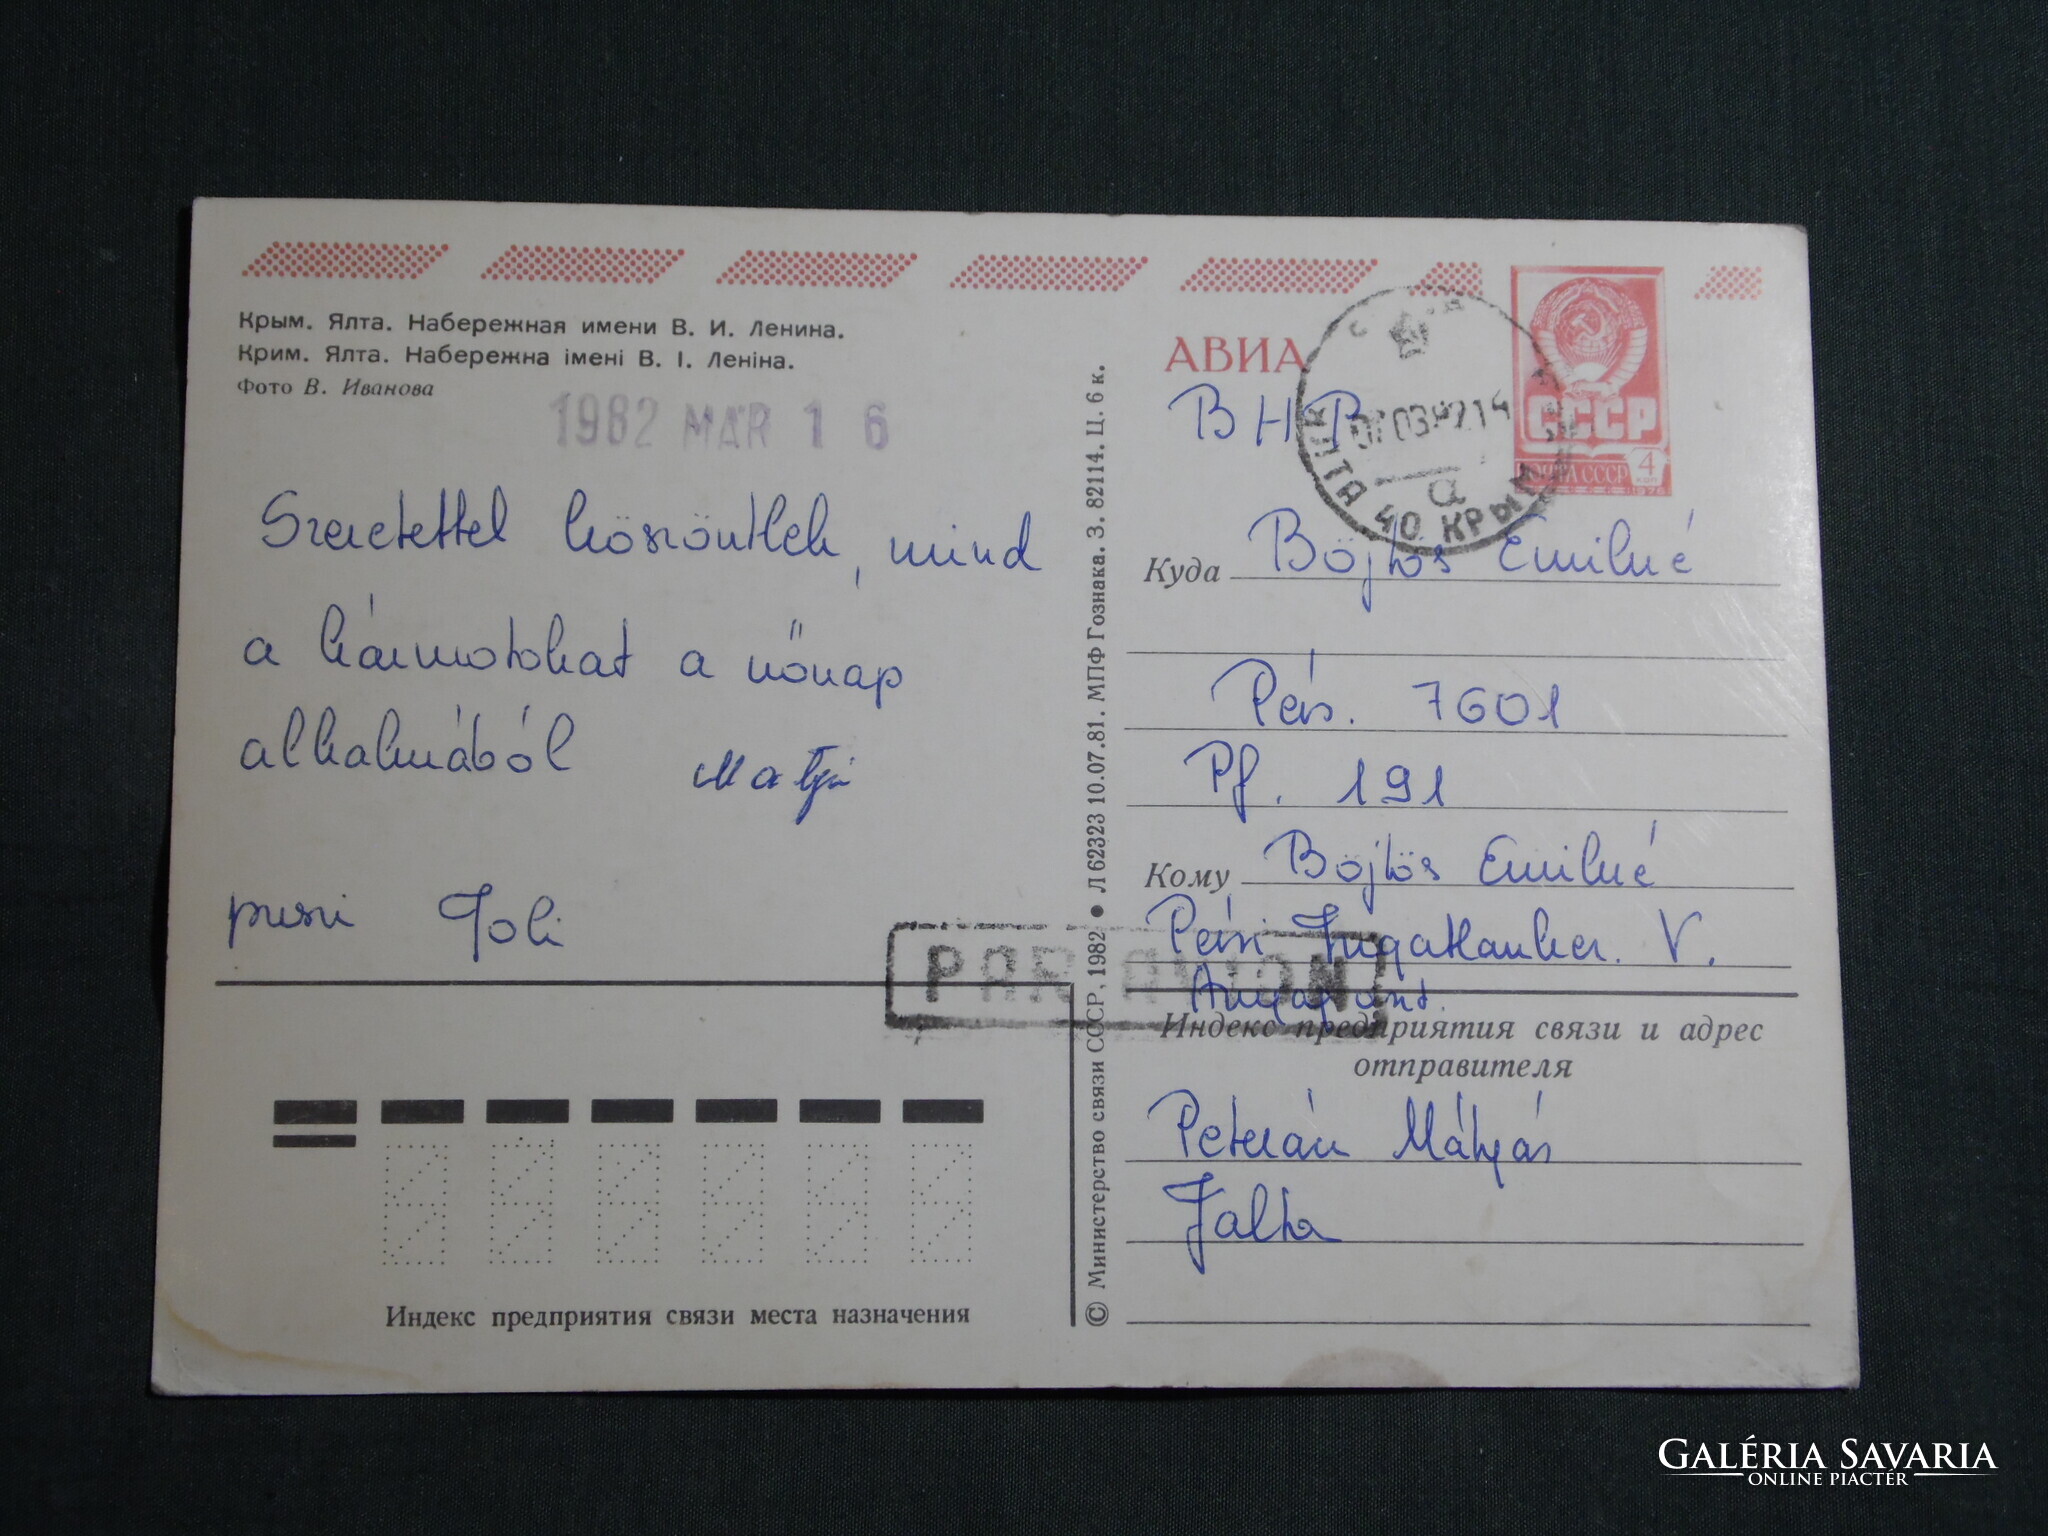 Крым. Ялта. Набережная имени В. И. Ленина.
Крим. Ялта. Набережна імені В. І. Леніна.
Фото В. Иванова
1982 MAR 1 6
Szeretettel köszöntlek, mind
a hármotokat a nőnap
alkalmából Matyi
puszi Joli
Индекс предприятия связи места назначения
© Министерство связи СССР, 1982 ● Л 62323 10.07.81. МПФ Гознака. З. 82114. Ц. 6 к.
PAR AVION
АВИА
ВНР
ЯЛТА 40 КРЫМ
а
СССР
ПОЧТА СССР 4
КОП
1976
Куда Böjtös Emilné
Pécs. 7601
Pf. 191
Кому Böjtös Emilné
Pécsi Ingatlankez. V.
Индекс предприятия связи и адрес
отправителя
Peterán Mátyás
Jalta
GALÉRIA SAVARIA
ONLINE PIACTÉR